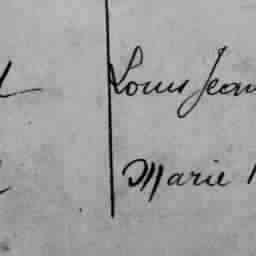 Louis Jean
Marie